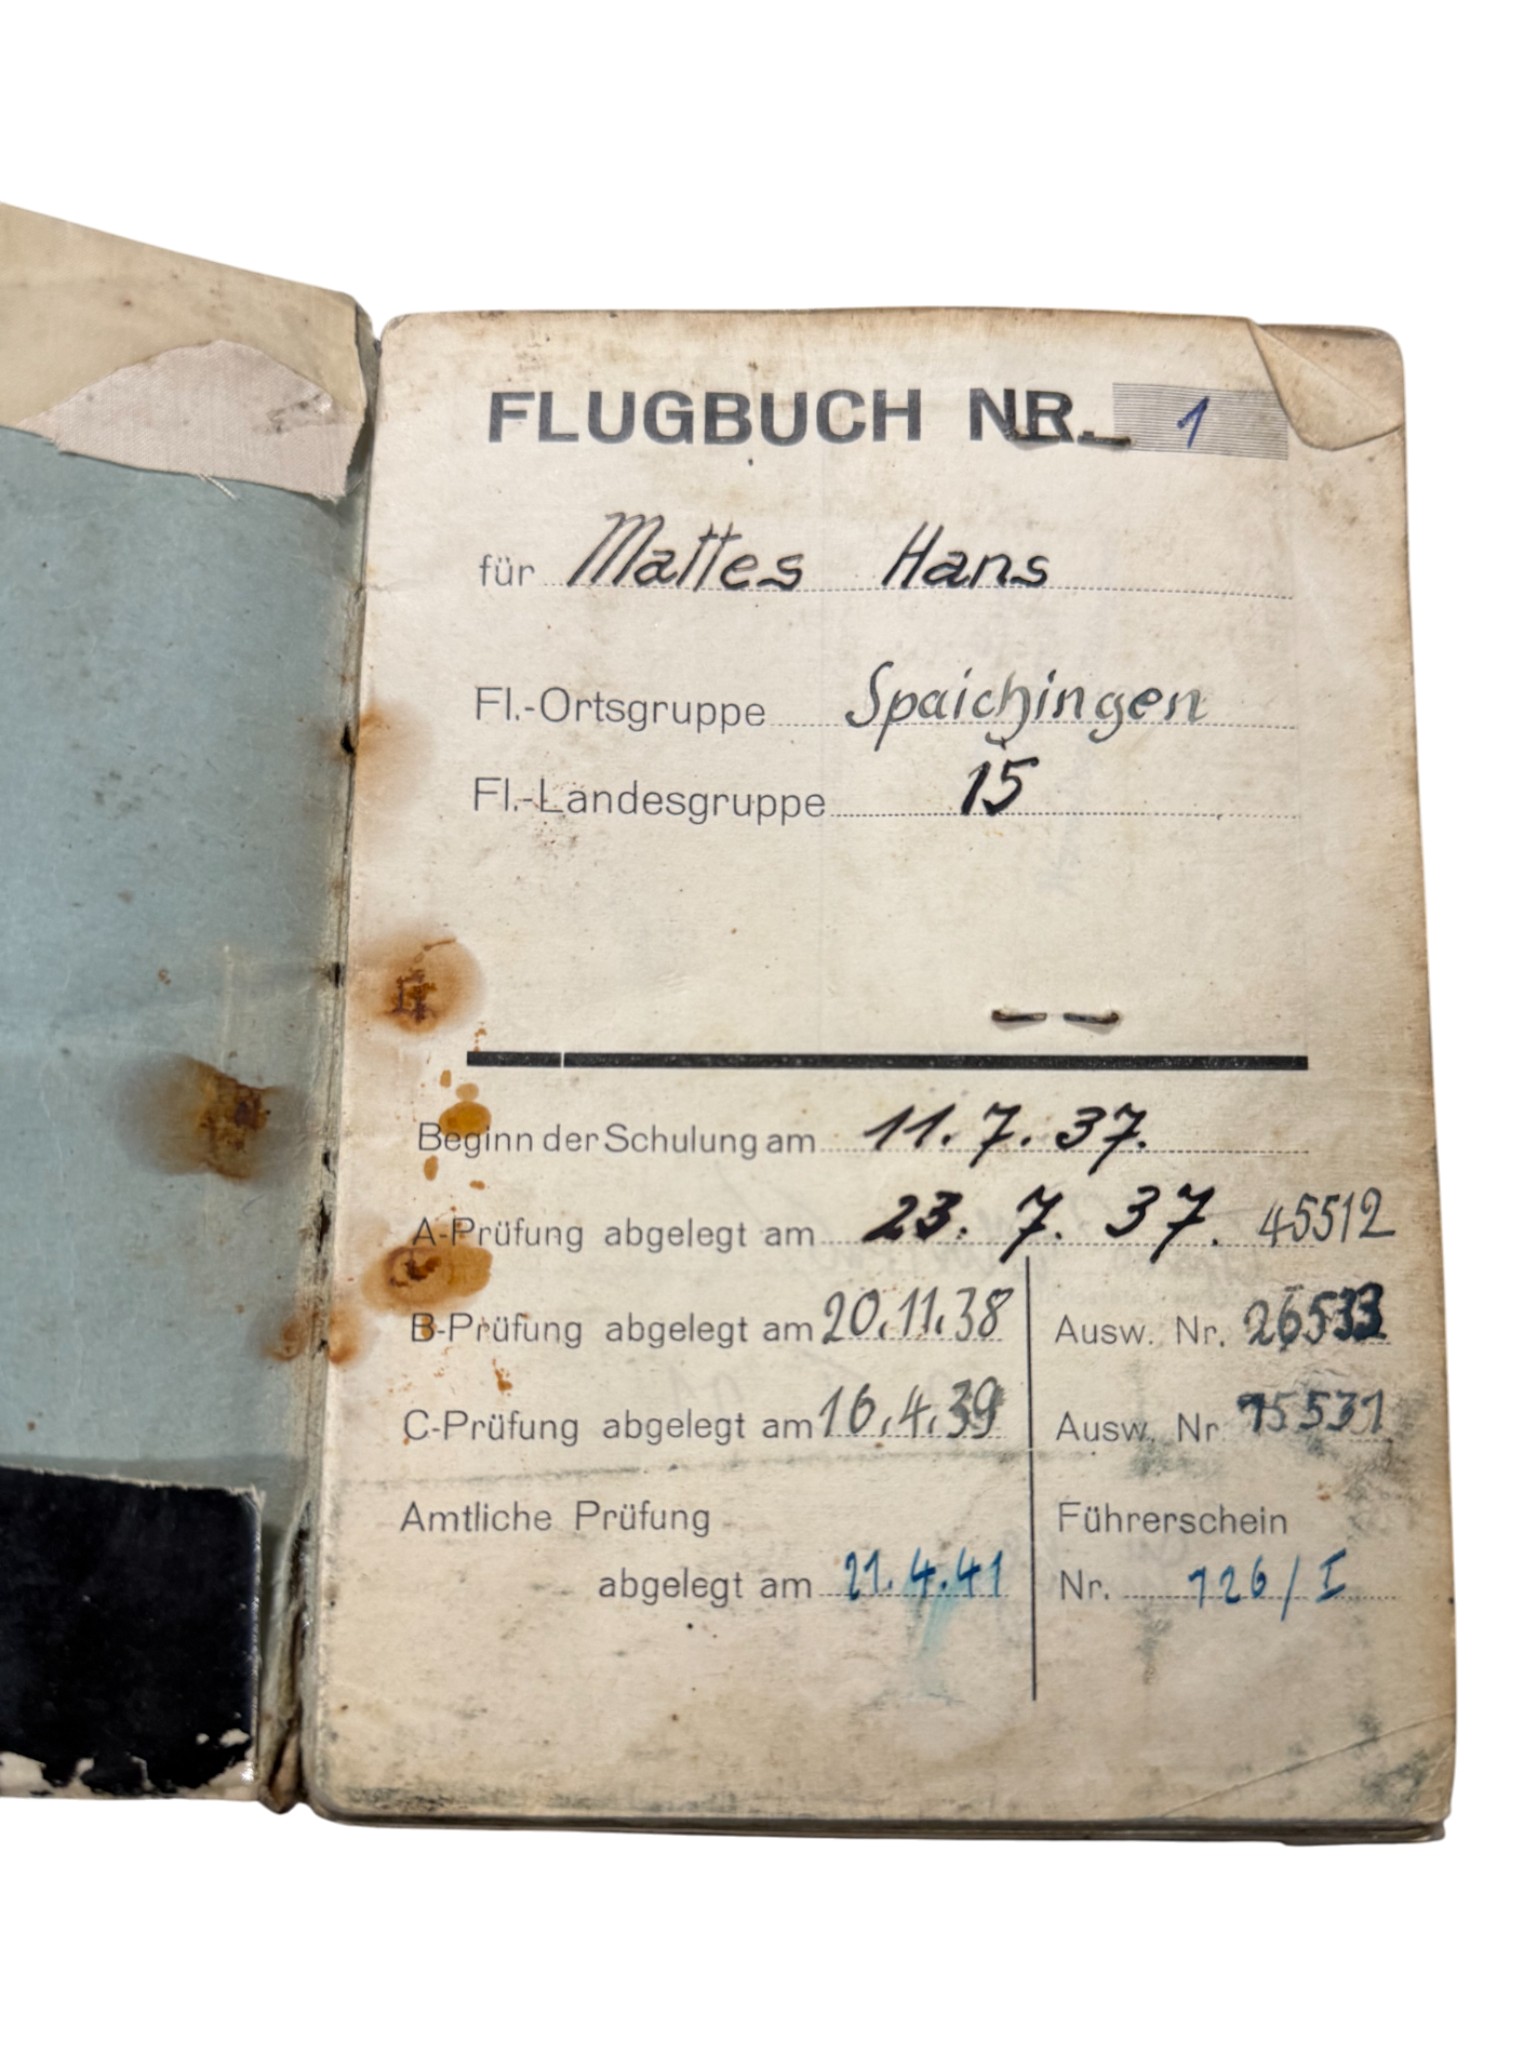 FLUGBUCH NR. 1
für Mattes Hans
Fl.-Ortsgruppe Spaichingen
Fl.-Landesgruppe 15
Beginn der Schulung am 11. 7. 37.
A-Prüfung abgelegt am 23. 7. 37. 45512
B-Prüfung abgelegt am 20.11.38 Ausw. Nr. 26533
C-Prüfung abgelegt am 16.4.39 Ausw. Nr. 15531
Amtliche Prüfung Führerschein
abgelegt am 21.4.41 Nr. 126/I